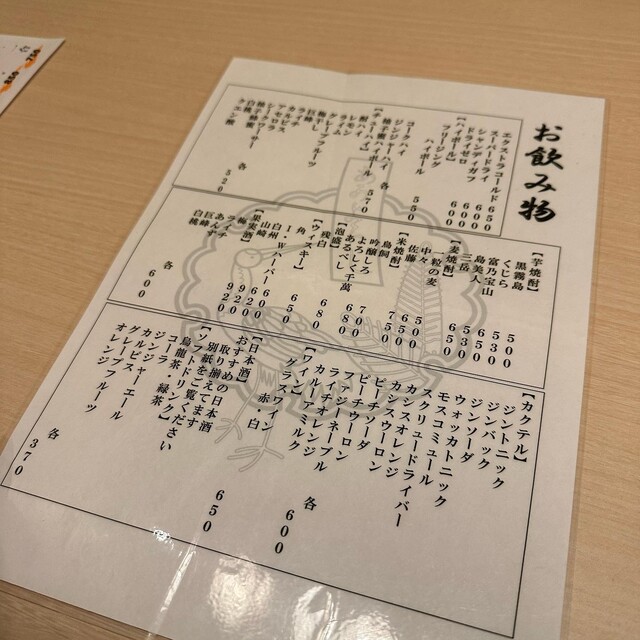 お飲み物
エクストラコールド 650
スーパードライ 600
シャンディガフ 600
ドライゼロ 600
【ハイボール】
フリージング
ハイボール 550
コークハイ
ジンジャーハイ
柚子蜜ハイボール 各 570
【チューハイ】
酎ハイ
レモン
ライム
グレープフルーツ
梅干し
巨峰
ライチ
カルピス
アセロラ
シークワーサー
柚子蜂蜜
白桃
クエン酸 各 520
【芋焼酎】
黒霧島 500
くじら 530
富乃宝山 650
島美人 530
三岳 650
【麦焼酎】
一粒の麦
中々 650
佐藤 650
【米焼酎】
鳥飼 750
吟醸しろ 700
よろしく千萬
あるべし 680
【泡盛】
残白 680
【ウィスキー】
角 650
I・Wハーパー 600
白州 920
山崎 920
【果実酒】
梅
ライチ
あんず
巨峰
白桃 各 600
【カクテル】
ジントニック
ジンバック
ジンソーダ
ウォッカトニック
モスコミュール
スクリュードライバー
カシスオレンジ
カシスウーロン
ピーチソーダ
ピーチウーロン
ファジーネーブル
ライチオレンジ
カルアミルク 各 600
【ワイン】
グラスワイン
赤・白 650
【日本酒】
おすすめの日本酒
取り揃えてます
別紙をご覧ください
【ソフトドリンク】
烏龍茶・緑茶
コーラ
ジンジャーエール
カルピス
グレープフルーツ
オレンジ 各 370